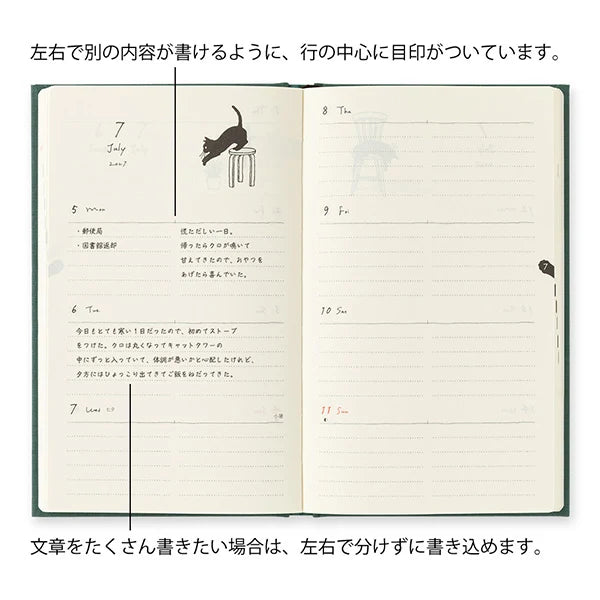 左右で別の内容が書けるように、行の中心に目印がついています。
7
July
5 mon
・郵便局
・図書館返却
慌ただしい一日。
帰ったらクロが鳴いて
甘えてきたので、おやつを
あげたら喜んでいた。
6 Tue
今日もとても寒い1日だったので、初めてストーブ
をつけた。クロは丸くなってキャットタワーの
中にずっと入っていて、体調が悪いかと心配したけれど、
夕方にはひょっこり出てきてご飯をねだってきた。
7 Wed 七夕
小暑
8 Thu
9 Fri
7
10 Sat
11 Sun
文章をたくさん書きたい場合は、左右で分けずに書き込めます。